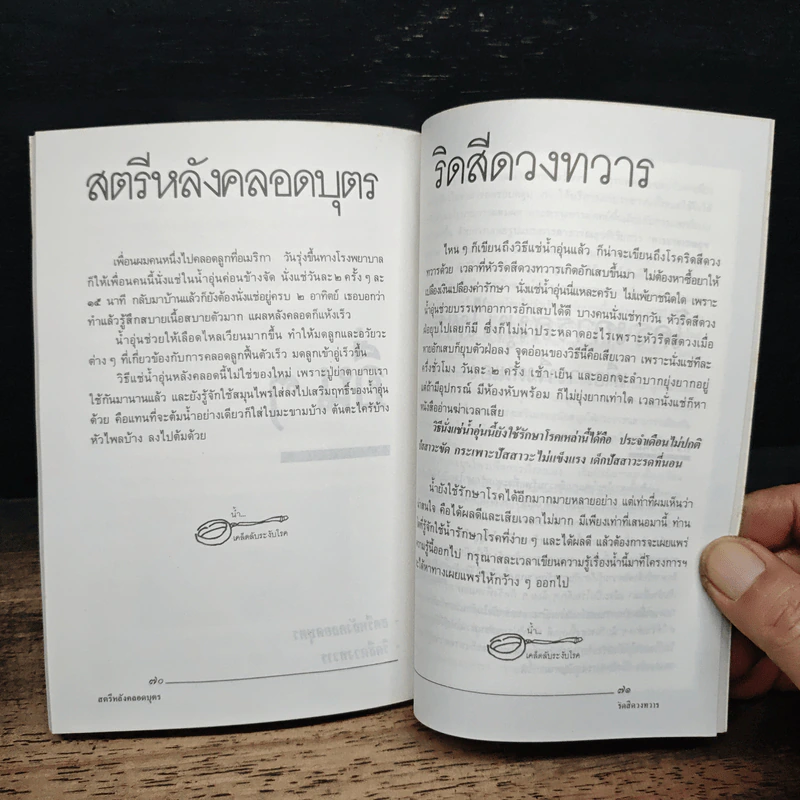 สตรีหลังคลอดบุตร
เพื่อนผมคนหนึ่งไปคลอดลูกที่อเมริกา วันรุ่งขึ้นทางโรงพยาบาล
ก็ให้เพื่อนคนนี้นั่งแช่ในน้ำอุ่นค่อนข้างจัด นั่งแช่วันละ ๒ ครั้ง ๆ ละ
๑๕ นาที กลับมาบ้านแล้วก็ยังต้องนั่งแช่อยู่ครบ ๒ อาทิตย์ เธอบอกว่า
ทำแล้วรู้สึกสบายเนื้อสบายตัวมาก แผลหลังคลอดก็แห้งเร็ว
น้ำอุ่นช่วยให้เลือดไหลเวียนมากขึ้น ทำให้มดลูกและอวัยวะ
ต่าง ๆ ที่เกี่ยวข้องกับการคลอดลูกฟื้นตัวเร็ว มดลูกเข้าอู่เร็วขึ้น
วิธีแช่น้ำอุ่นหลังคลอดนี้ไม่ใช่ของใหม่ เพราะปู่ย่าตายายเรา
ใช้กันมานานแล้ว และยังรู้จักใช้สมุนไพรใส่ลงไปเสริมฤทธิ์ของน้ำอุ่น
ด้วย คือแทนที่จะต้มน้ำอย่างเดียวก็ใส่ใบมะขามบ้าง ต้นตะไคร้บ้าง
หัวไพลบ้าง ลงไปต้มด้วย
น้ำ...
เคล็ดลับระงับโรค
๗๐
สตรีหลังคลอดบุตร
ริดสีดวงทวาร
ไหน ๆ ก็เขียนถึงวิธีแช่น้ำอุ่นแล้ว ก็น่าจะเขียนถึงโรคริดสีดวง
ทวารด้วย เวลาที่หัวริดสีดวงทวารเกิดอักเสบขึ้นมา ไม่ต้องหาซื้อยาให้
เปลืองเงินเปลืองค่ารักษา นั่งแช่น้ำอุ่นนี่แหละครับ ไม่แพ้ยาชนิดใด เพราะ
น้ำอุ่นช่วยบรรเทาอาการอักเสบได้ดี บางคนนั่งแช่ทุกวัน หัวริดสีดวง
ฝ่อยุบไปเลยก็มี ซึ่งก็ไม่น่าประหลาดอะไรเพราะหัวริดสีดวงเมื่อ
หายอักเสบก็ยุบตัวฝ่อลง จุดอ่อนของวิธีนี้คือเสียเวลา เพราะนั่งแช่ทีละ
ครึ่งชั่วโมง วันละ ๒ ครั้ง เช้า-เย็น และออกจะลำบากยุ่งยากอยู่
แต่ถ้ามีอุปกรณ์ มีห้องหับพร้อม ก็ไม่ยุ่งยากเท่าใด เวลานั่งแช่ก็หา
หนังสืออ่านฆ่าเวลาเสีย
วิธีนั่งแช่น้ำอุ่นนี้ยังใช้รักษาโรคเหล่านี้ได้คือ ประจำเดือนไม่ปกติ
ปัสสาวะขัด กระเพาะปัสสาวะไม่แข็งแรง เด็กปัสสาวะรดที่นอน
น้ำยังใช้รักษาโรคได้อีกมากมายหลายอย่าง แต่เท่าที่ผมเห็นว่า
น่าสนใจ คือได้ผลดีและเสียเวลาไม่มาก มีเพียงเท่าที่เสนอมานี้ ท่าน
ใดที่รู้จักใช้น้ำรักษาโรคที่ง่าย ๆ และได้ผลดี แล้วต้องการจะเผยแพร่
ความรู้นี้ออกไป กรุณาสละเวลาเขียนความรู้เรื่องน้ำนี้มาที่โครงการฯ
จะได้หาทางเผยแพร่ให้กว้าง ๆ ออกไป
น้ำ...
เคล็ดลับระงับโรค
๗๑
ริดสีดวงทวาร